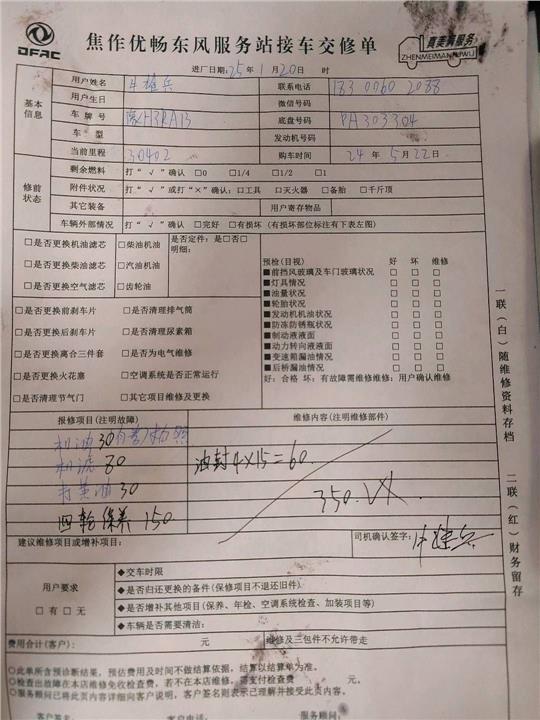 DFAC
焦作优畅东风服务站接车交修单
真美满服务
ZHENMEIMANFUWU
进厂日期:25年1月20日 时
基本信息
用户姓名 联系电话 183 0060 2088
用户生日 微信号码
车牌号 底盘号码 PA303304
车型 发动机号码
当前里程 30402 购车时间 24年5月22日
修前状态
剩余燃料 打“√”确认 □0 □1/4 □1/2 □1
附件状况 打“√”或打“×”确认:□工具 □灭火器 □备胎 □千斤顶
其它装备 用户寄存物品
车辆外部情况 打“√”确认 □完好 □有损坏 (有损坏部位标注有下表左图)
□是否更换机油滤芯 □柴油机油 是否定件:是□否□
明细:
□是否更换柴油滤芯 □汽油机油
□是否更换空气滤芯 □齿轮油
预检(目视) 好 坏 维修
■前挡风玻璃及车门玻璃状况 □ □ □
■灯具情况 □ □ □
■油量状况 □ □ □
■轮胎状况 □ □ □
■发动机机油状况 □ □ □
■防冻防锈瓶状况 □ □ □
■制动液液面 □ □ □
■动力转向液液面 □ □ □
■变速箱漏油情况 □ □ □
■后桥漏油情况 □ □ □
好:合格 坏:有故障需维修维修:用户确认维修
□是否更换前刹车片 □是否清理排气筒
□是否更换后刹车片 □是否清理尿素箱
□是否更换离合三件套 □是否为电气维修
□是否更换火花塞 □空调系统是否正常运行
□是否清理节气门 □其它项目维修及更换
报修项目(注明故障) 维修内容(注明维修部件)
机油 30
机滤 80
打黄油 30
四轮保养 150
油封4×15=60
350.
建议维修项目或增补项目: 司机确认签字:
用户要求
□有 □无
◆交车时限
◆是否归还更换的备件(保修项目不退还旧件)
◆是否增补其他项目(保养、年检、空调系统检查、加装项目等)
◆车辆是否需要清洁:
费用合计(客户): 元 维修及三包件不允许带走
○此单所含预诊断结果,预估费用及时间不做结算依据,结算以结算单为准。
○检查出故障在本店维修免收检查费,若不在本店维修,需支付检查费 元。
○服务顾问已将此页内容详细向客户说明,客户签名则表示已理解并接受此页内容。
客户签名: 客户电话: 服务顾问:
一联(白)随维修资料存档
二联(红)财务留存